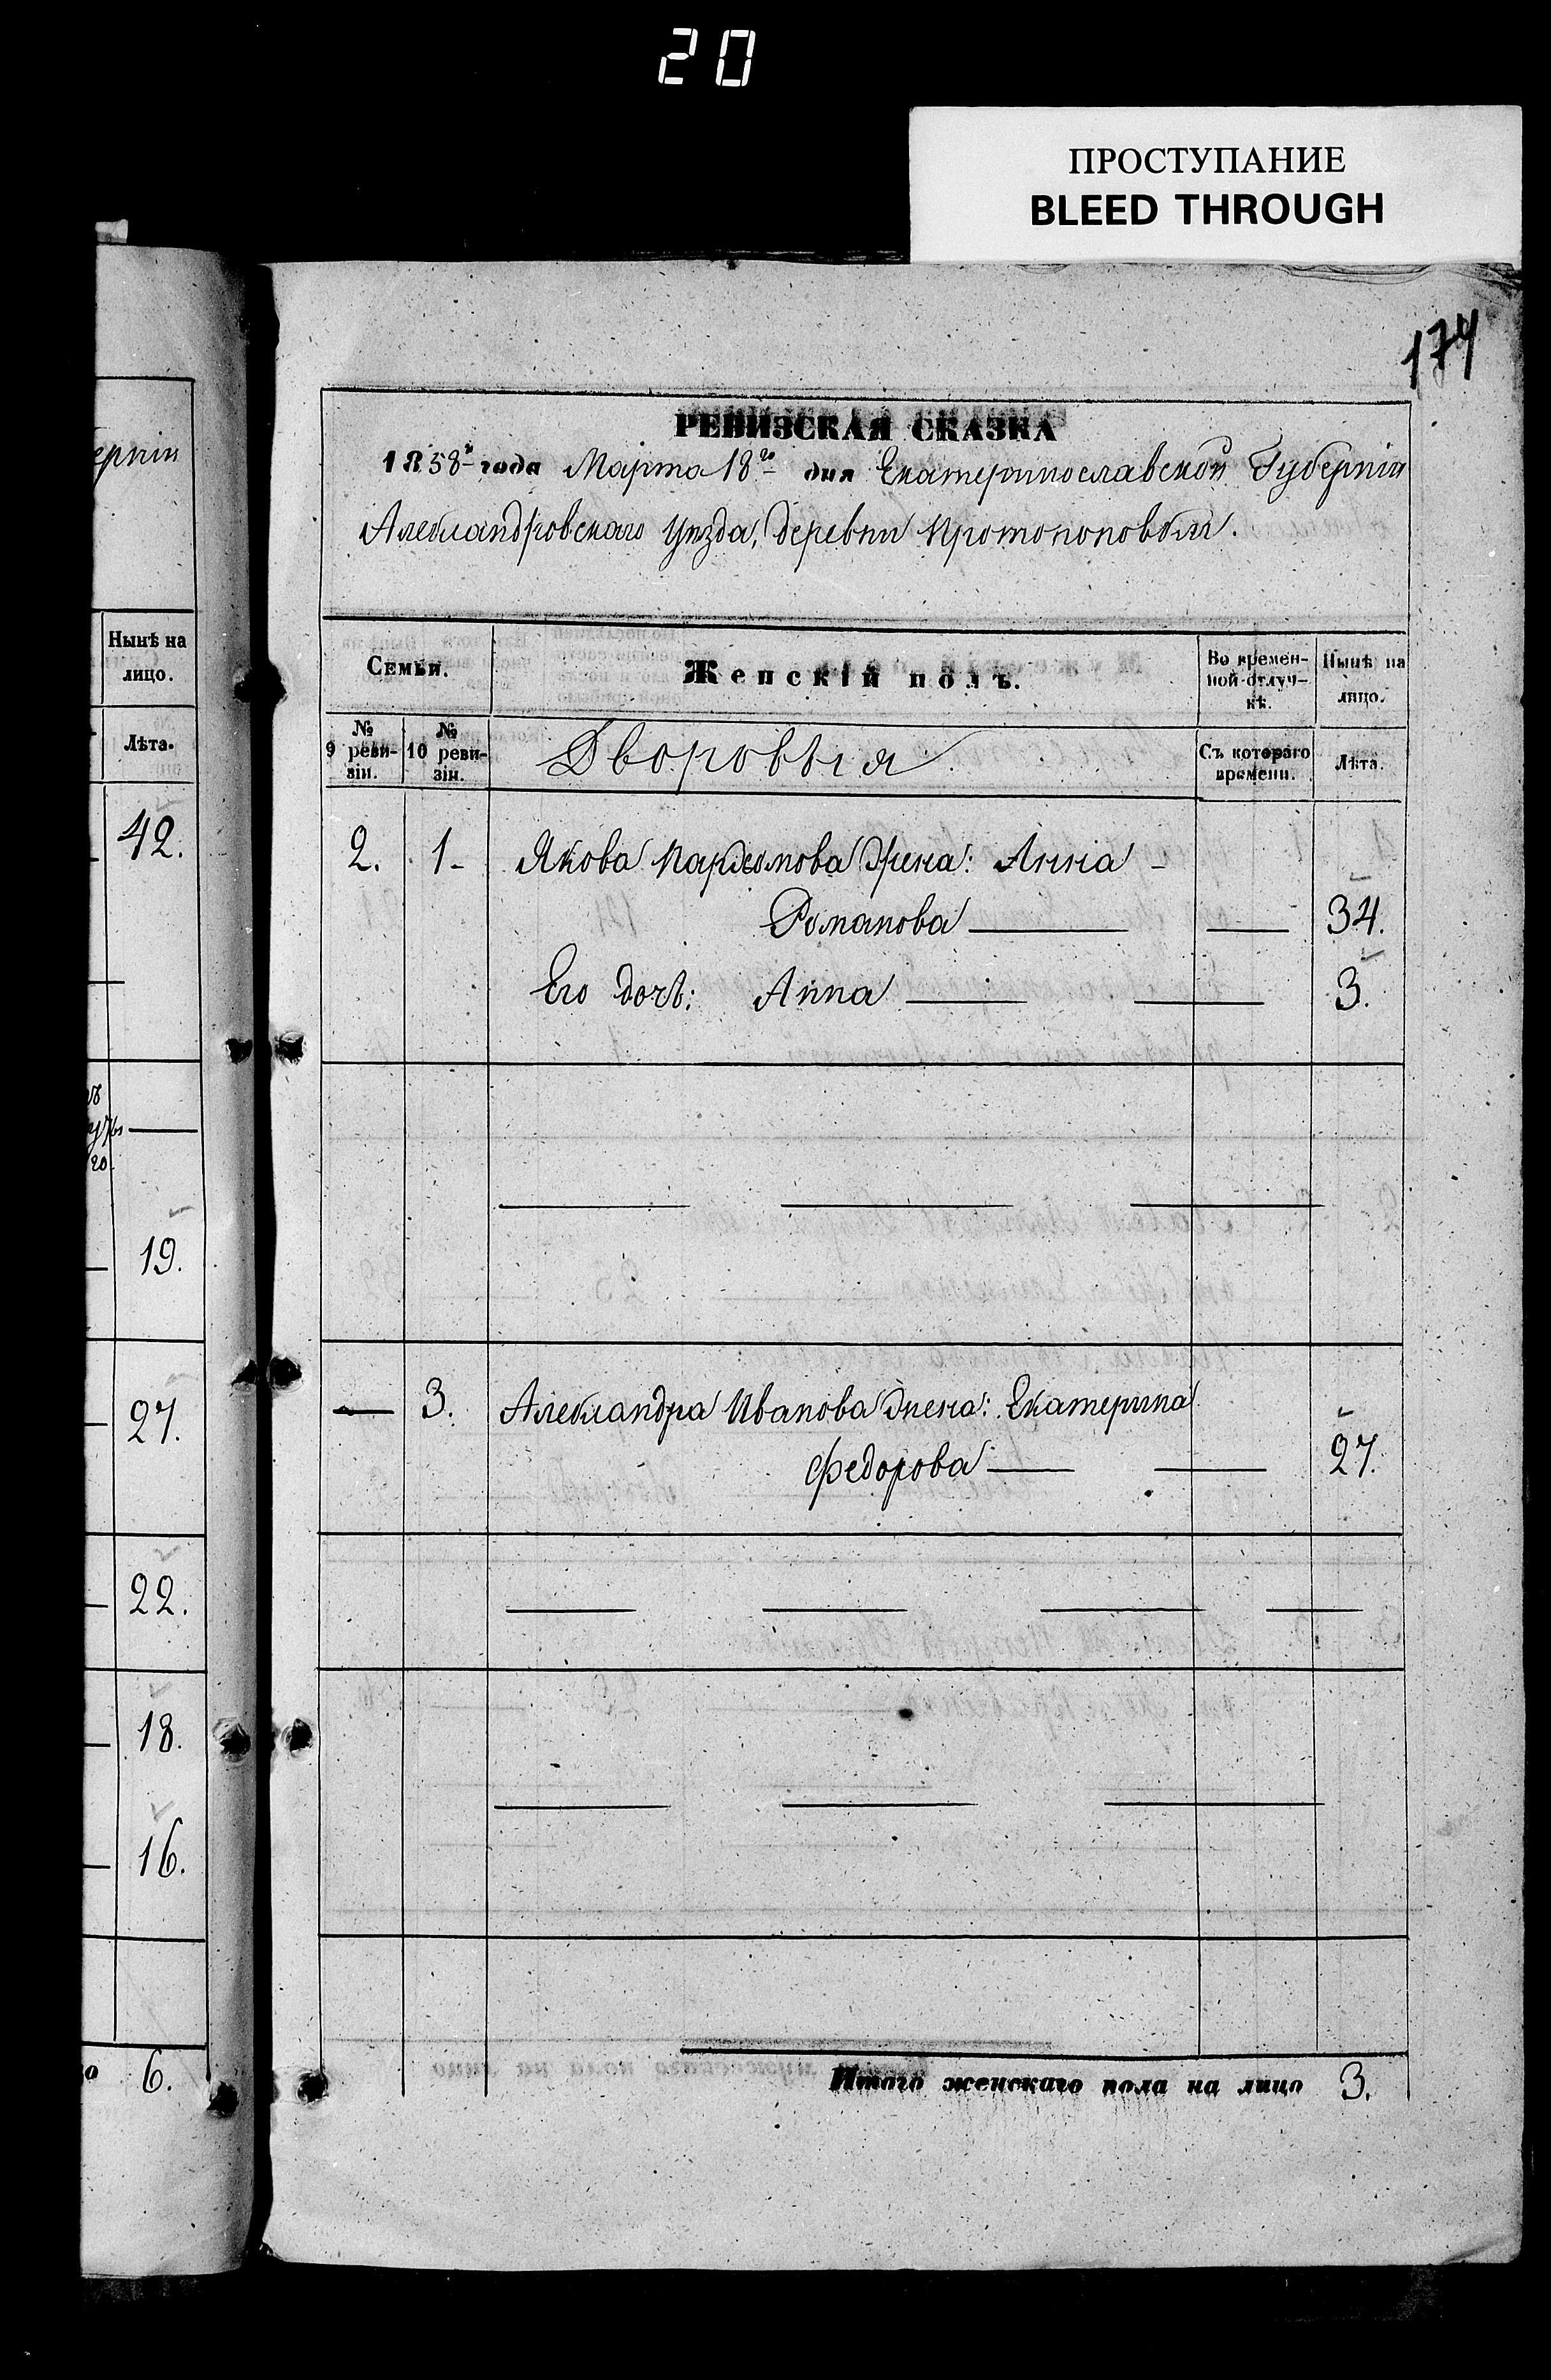 20
ПРОСТУПАНИЕ
BLEED THROUGH
174
ерніи
Нынѣ на
лицо.
Лѣта.
42.
19.
27.
22.
18.
16.
6.
РЕВИЗСКАЯ СКАЗКА
1858го года Марта 18го дня Екатеринославской Губерніи
Александровскаго уѣзда, деревни Протопоповой.
Семьи.
Женскій полъ.
Во времен-
ной отлуч-
кѣ.
Нынѣ на
лицо.
№
9 реви-
зіи.
№
10 реви-
зіи.
Дворовыя
Съ котораго
времени.
Лѣта.
2. 1 - Якова Пархомова жена: Анна -
Романова 34.
Его дочь: Анна 3.
3. Александра Иванова жена: Екатерина
Федорова 27.
Итого женскаго пола на лицо 3.